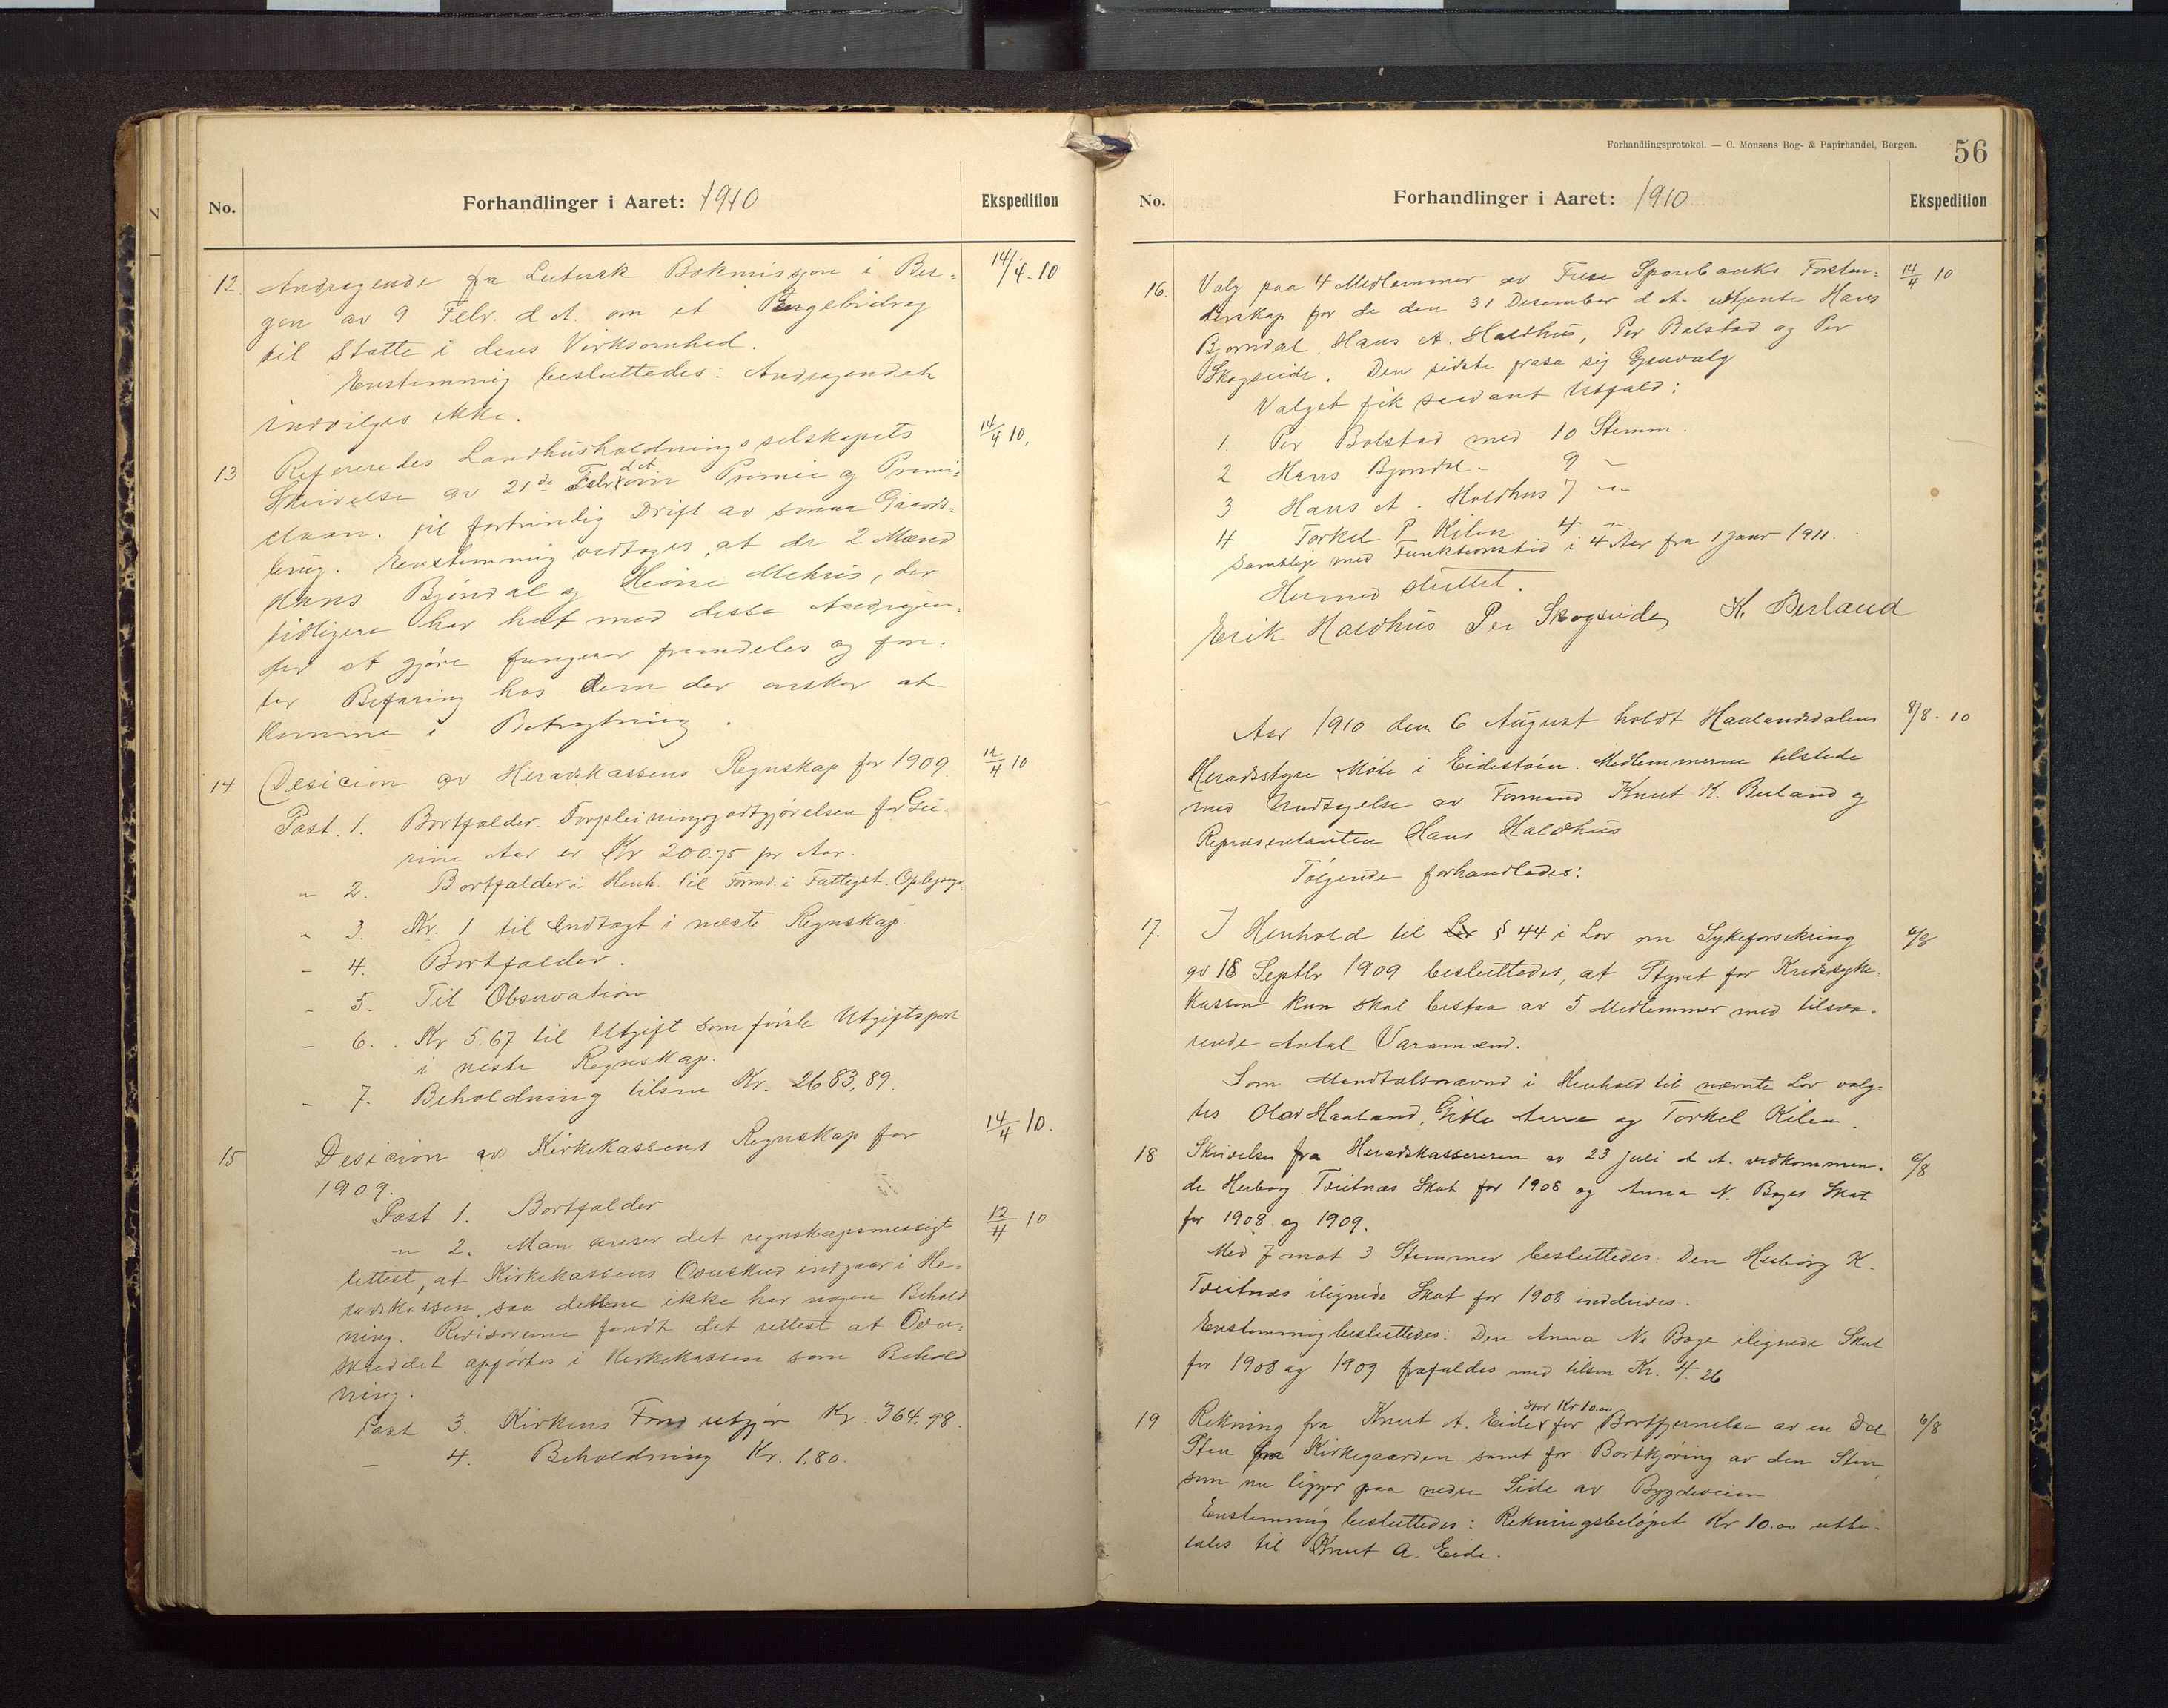 No.
Forhandlinger i Aaret: 1910
Ekspedition
12. Andragende fra Lutersk Bokmissjon i Ber-
14/4. 10
gen av 9 Febr. d. A. om et Pengebidrag
til Støtte i deres Virksomhed.
Enstemmig besluttedes: Andragendet
indvilges ikke.
13 Refereredes Landhusholdningsselskapets
14/4 10.
Skrivelse av 21de Febr. d.A. om Premie og Premi-
elaan til fortrinlig Drift av smaa Gaards-
brug. Enstemmig vedtages, at de 2 Mænd
Hans Bjøndal og Heine Mehus, der
tidligere har hat med disse Andragen-
der at gjøre fungerer fremdeles og fore-
tar Befaring hos dem der ønsker at
komme i Betragtning.
14 Desicion av Heradskassens Regnskap for 1909.
14/4 10
Post. 1. Bortfalder. Forpleiningsgodtgjørelsen for
Aar er Kr 200.75 pr Aar.
" 2. Bortfalder i Henh. til Formd. i Fattigst. Oplysn.
" 3. Kr. 1 til Indtægt i næste Regnskap.
- 4. Bortfalder.
" 5. Til Observation
- 6. Kr 5.67 til Utgift som første Utgiftspost
i neste Regnskap.
- 7. Beholdning tilsm Kr. 2683,89.
15 Desicion av Kirkekassens Regnskap for
14/4 10.
1909.
Post 1. Bortfalder
" 2. Man anser det regnskapsmessigt
12/4 10
lettest, at Kirkekassens Overskud indgaar i He-
radskassen, saa denne ikke har nogen Behold
ning. Revisorerne fandt det rettest at Over-
skuddet opførtes i Kirkekassen som Behold
ning.
Post 3. Kirkens Fond utgjør Kr. 364.98.
- 4. Beholdning Kr. 1.80.
Forhandlingsprotokol. — C. Monsens Bog- & Papirhandel, Bergen.
56
No.
Forhandlinger i Aaret: 1910
Ekspedition
16. Valg paa 4 Medlemmer av Fuse Sparebanks Forstan-
14/4 10
derskap for de den 31 Desember d. A. uttjente Hans
Bjørndal, Hans A. Holdhus, Per Bolstad og Per
Skogseide. Den sidste frasa sig Gjenvalg
Valget fik saadant Utfald:
1. Per Bolstad med 10 Stemm.
2 Hans Bjøndal - 9 -
3 Hans A. Holdhus 7 -"-
4 Torkel P Kilen 4 "
Samtlige med Funktionstid i 4 Aar fra 1 Januar 1911.
Hermed sluttet.
Erik Holdhus Per Skogseide K. Berland
Aar 1910 den 6 August holdt Haalandsdalens
8/8. 10
Heradsstyre Møte i Eidestøen. Medlemmerne tilstede
med Undtagelse av Formand Knut K. Berland og
Repræsentanten Hans Holdhus
Følgende forhandledes:
17. I Henhold til Lov § 44 i Lov om Sykeforsikring
6/8
av 18 Septbr 1909 besluttedes, at Styret for Kredssyke-
kassen kun skal bestaa av 5 Medlemmer med tilsva-
rende Antal Varamænd.
Som Mandtalsnævnd i Henhold til nævnte Lov valg-
tes Olav Haaland, Gitle Aarra og Torkel Kilen.
18 Skrivelse fra Heradskassereren av 23 juli d. A. vedkommen-
6/8
de Herborg Tveitnæs Skat for 1908 og Anna N. Boges Skat
for 1908 og 1909.
Med 7 mot 3 Stemmer besluttedes: Den Herborg K.
Tveitnæs ilignede Skat for 1908 inddrives.
Enstemmig besluttedes: Den Anna N. Boge ilignede Skat
for 1908 og 1909 frafaldes med tilsm Kr. 4.26
19 Rekning fra Knut A. Eide stor Kr 10.00 for Bortfjernelse av en Del
6/8
Sten fra Kirkegaarden samt for Bortkjøring av den Sten
som nu ligger paa nedre Side av Bygdeveien
Enstemmig besluttedes: Rekningsbeløpet Kr 10.00 utbe-
tales til Knut A. Eide.